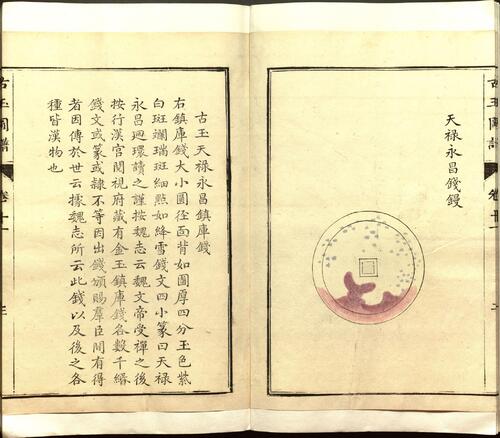 古玉圖譜
天禄永昌錢鏝
古玉天禄永昌鎮庫錢
右鎮庫錢大小圓徑面背如圖厚四分玉色紫
白斑斕瑞斑細㸃如絳雪錢文四小篆曰天禄
永昌廻環讀之謹按魏志云魏文帝受禪之後
按行漢宫閱視府藏有金玉鎮庫錢各數千緡
錢文或篆或隸不等因出錢頒賜羣臣間有得
者因傳於世云據魏志所云此錢以及後之各
種皆漢物也
古玉圖譜
三